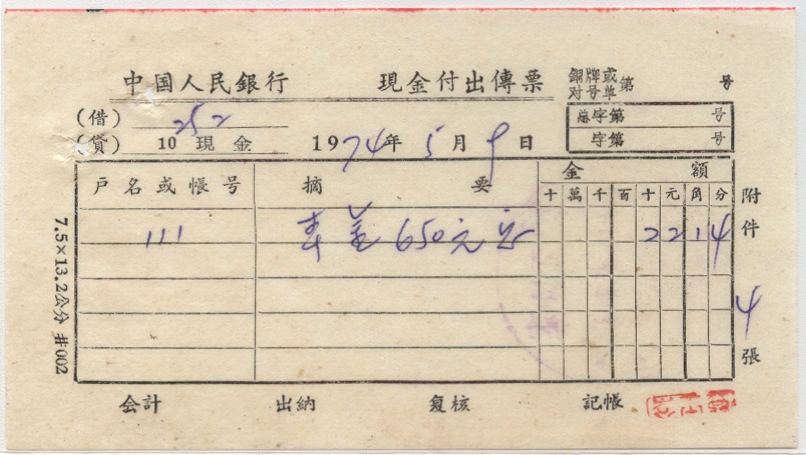 中国人民銀行 現金付出傳票 銅牌或 第 号
对号单
(借) 252 总字第 号
(貸) 10 現金 1974年5月9日 字第 号
戶名或帳号 摘要 金額
十萬千百十元角分
111 650元 2214
附件 4 張
7.5×13.2公分 #002
会計 出納 复核 記帳